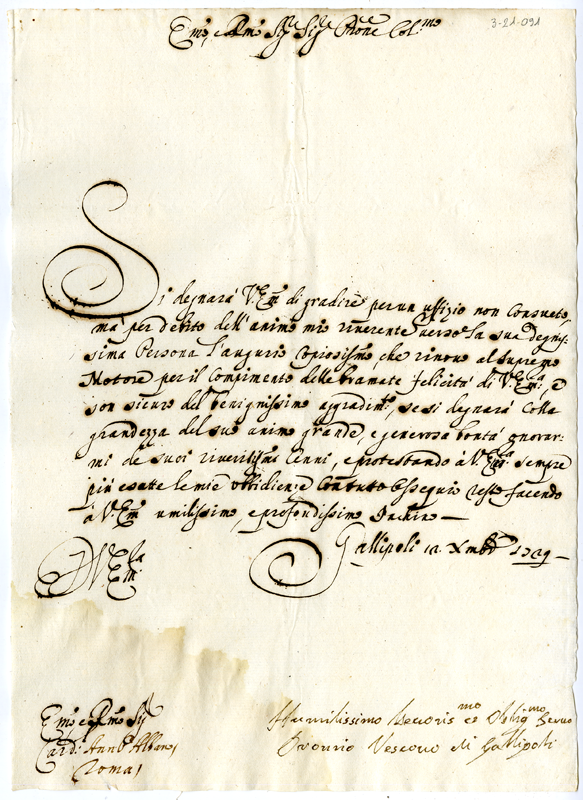 3-21-091
Em̃o, e Rm̃o Sig.re Sig.re Pron̄e Col:mo
Si degnarà V. Em̃ di gradire per un uffizio non Consueto,
mà per debito dell'animo mio riverente verso la sua degnis:
sima Persona l'augurio copiosissimo, che rinovo al Supremo
Motore per il Compimento delle bramate felicità di V. Em:za, e
son sicuro del benignissimo aggradim:to, se si degnarà colla
grandezza del suo animo grande, e generosa bontà onorar:
mi de suoi riveritissimi Cenni, e protestando à V. Em:za sempre
più esatte le mie obbidienze Con tutto ossequio resto facendo
à V. Em̃ umilissimo, e profondissimo Inchino —
Gallipoli 12 Xmbre 1729 —
D V. Em:za
Em̃o e Rm̃o Sig.
Card: Ann.e Albani
Roma
Humilissimo Devotis:mo ed Oblig:mo Servo
Vescovo di Gallipoli